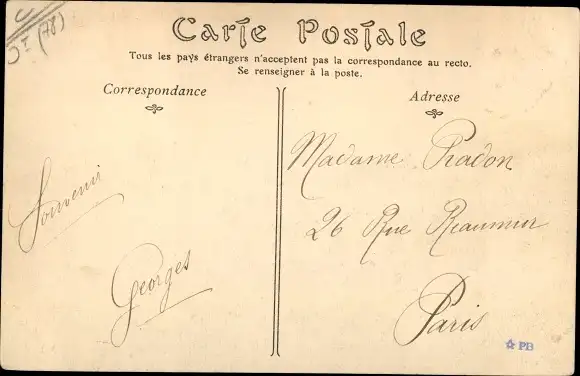 C
JI (78)
Carte Postale
Tous les pays étrangers n'acceptent pas la correspondance au recto.
Se renseigner à la poste.
Correspondance
Adresse
Souvenir
Georges
Madame Pradon
26 Rue Reaumur
Paris
PB